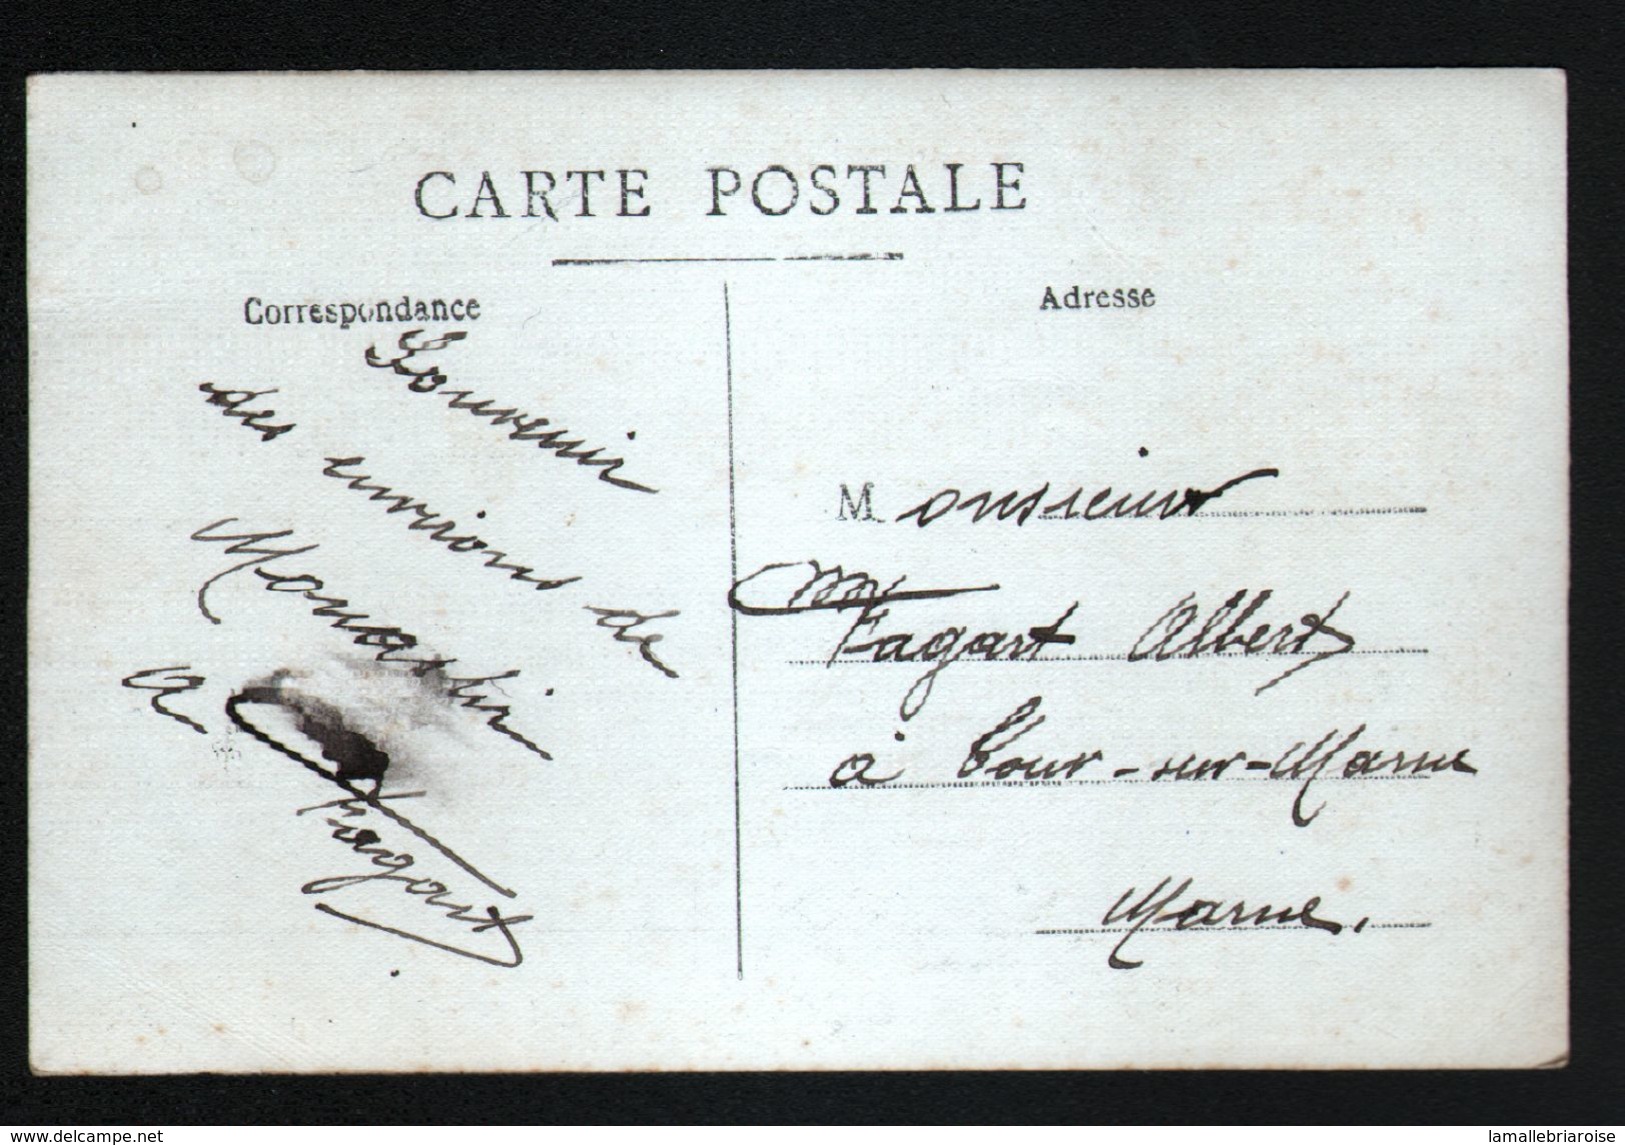 CARTE POSTALE
Correspondance
Souvenir
des environs de
Monastir
A Fagart
Adresse
Monsieur
Fagart Albert
à Cour-sur-Marne
Marne.
delcampe.net
lamallebriaroise